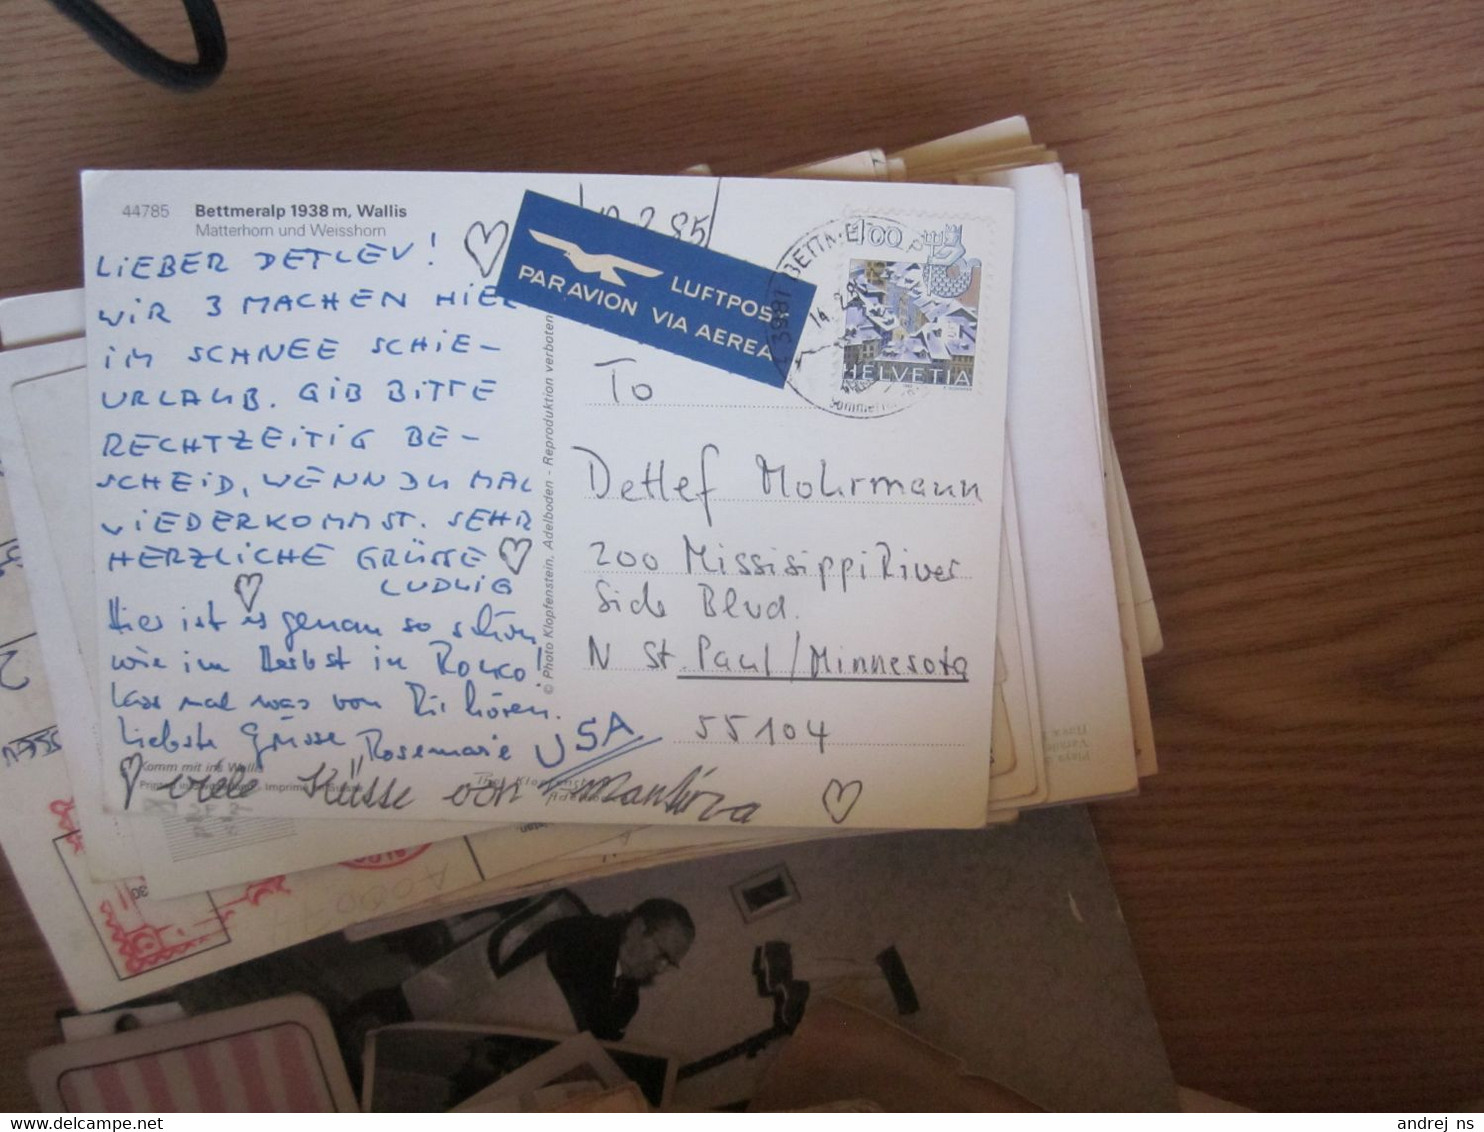 44785 Bettmeralp 1938 m, Wallis
Matterhorn und Weisshorn
LIEBER DETLEV!
WIR 3 MACHEN HIER
IM SCHNEE SCHIE-
URLAUB. GIB BITTE
RECHTZEITIG BE-
SCHEID, WENN DU MAL
WIEDERKOMMST. SEHR
HERZLICHE GRÜSSE
LUDWIG
Hier ist es genau so schön
wie im Herbst in
Lass mal was von Dir hören.
Liebste Grüsse Rosemarie
Komm mit ins Wallis
viele Küsse von
© Photo Klopfenstein, Adelboden - Reproduktion verboten
LUFTPOST
PAR AVION VIA AEREA
3981 BETTM
14.2.
100
HELVETIA
To
Detlef Mohrmann
200 Missisippi River
Side Blvd.
N St. Paul/Minnesota
55104
USA
andrej_ns